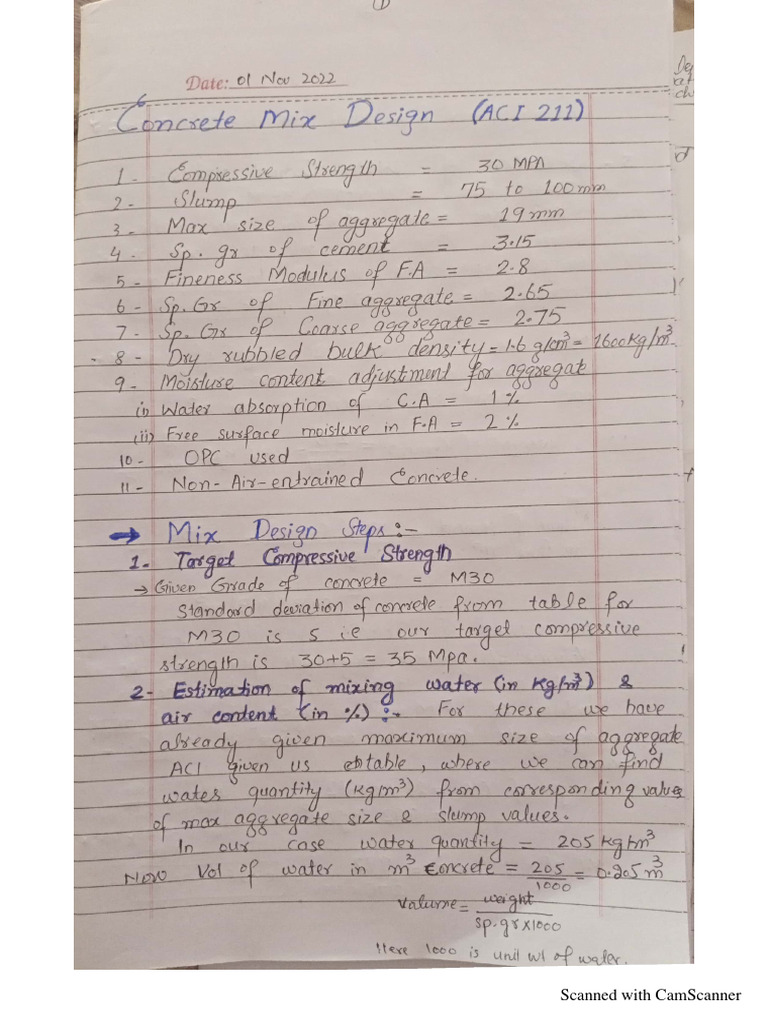 1
Date: 01 Nov 2022
Concrete Mix Design (ACI 211)
1 - Compressive Strength = 30 MPA
2 - Slump = 75 to 100mm
3 - Max size of aggregate = 19mm
4 - Sp. gr of cement = 3.15
5 - Fineness Modulus of F.A = 2.8
6 - Sp. Gr of Fine aggregate = 2.65
7 - Sp. Gr of Coarse aggregate = 2.75
8 - Dry rubbled bulk density = 1.6 g/cm³ = 1600kg/m³
9 - Moisture content adjustment for aggregat
(i) Water absorption of C.A = 1%
(ii) Free surface moisture in F.A = 2%
10 - OPC used
11 - Non-Air-entrained Concrete.
→ Mix Design Steps :-
1- Target Compressive Strength
→ Given Grade of concrete = M30
Standard deviation of concrete from table for
M30 is 5 i.e our target compressive
strength is 30+5 = 35 Mpa.
2- Estimation of mixing water (in Kg/m³) &
air content (in %) :- For these we have
already given maximum size of aggregate
ACI given us table, where we can find
water quantity (kg/m³) from corresponding values
of max aggregate size & slump values.
In our case water quantity = 205 kg/m³
Now Vol of water in m³ Concrete = 205/1000 = 0.205 m³
Valume = weight / sp.gr×1000
Here 1000 is unit wt of water.
Scanned with CamScanner